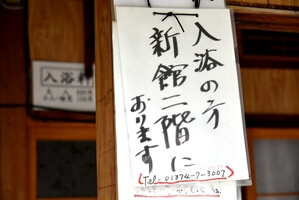 入浴の方
新館二階に
おります
(Tel-01374-7-3007)
入浴料